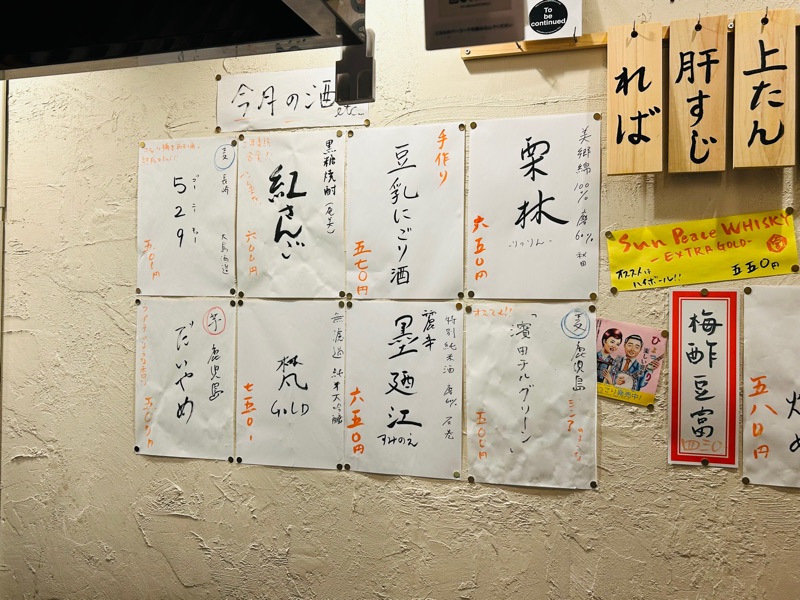 To be continued
今月の酒
etc...
美郷錦 100% 磨60% 秋田
栗林
りつりん
六五〇円
手作り
豆乳にごり酒
五七〇円
黒糖焼酎(奄美)
紅さんご
六〇〇円
麦 長崎 大島酒造
529
ゴー ニー キュー
五〇〇円
麦 鹿児島
「濱田チルグリーン」
五〇〇円
特別純米酒
石巻
墨廼江
すみのえ
六五〇円
無濾過 純米大吟醸
梵
GOLD
七五〇円
芋 鹿児島
だいやめ
上たん
肝すじ
れば
Sun Peace WHISKY
-EXTRA GOLD-
オススメは
ハイボール!!
五五〇円
梅酢豆富
五八〇円